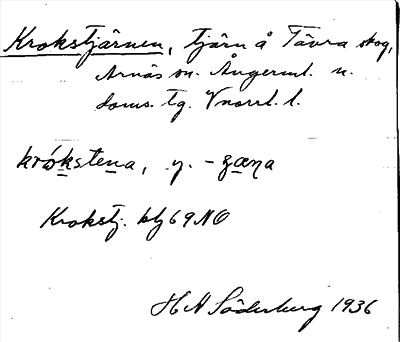 Krokstjärnen, tjärn å Tävra skog,
Arnäs sn. Ångerml. n.
doms. tg. Vnorrl. l.
krókstena, y. -zæna
Krokstj. blj 69 NO
H A Söderberg 1936